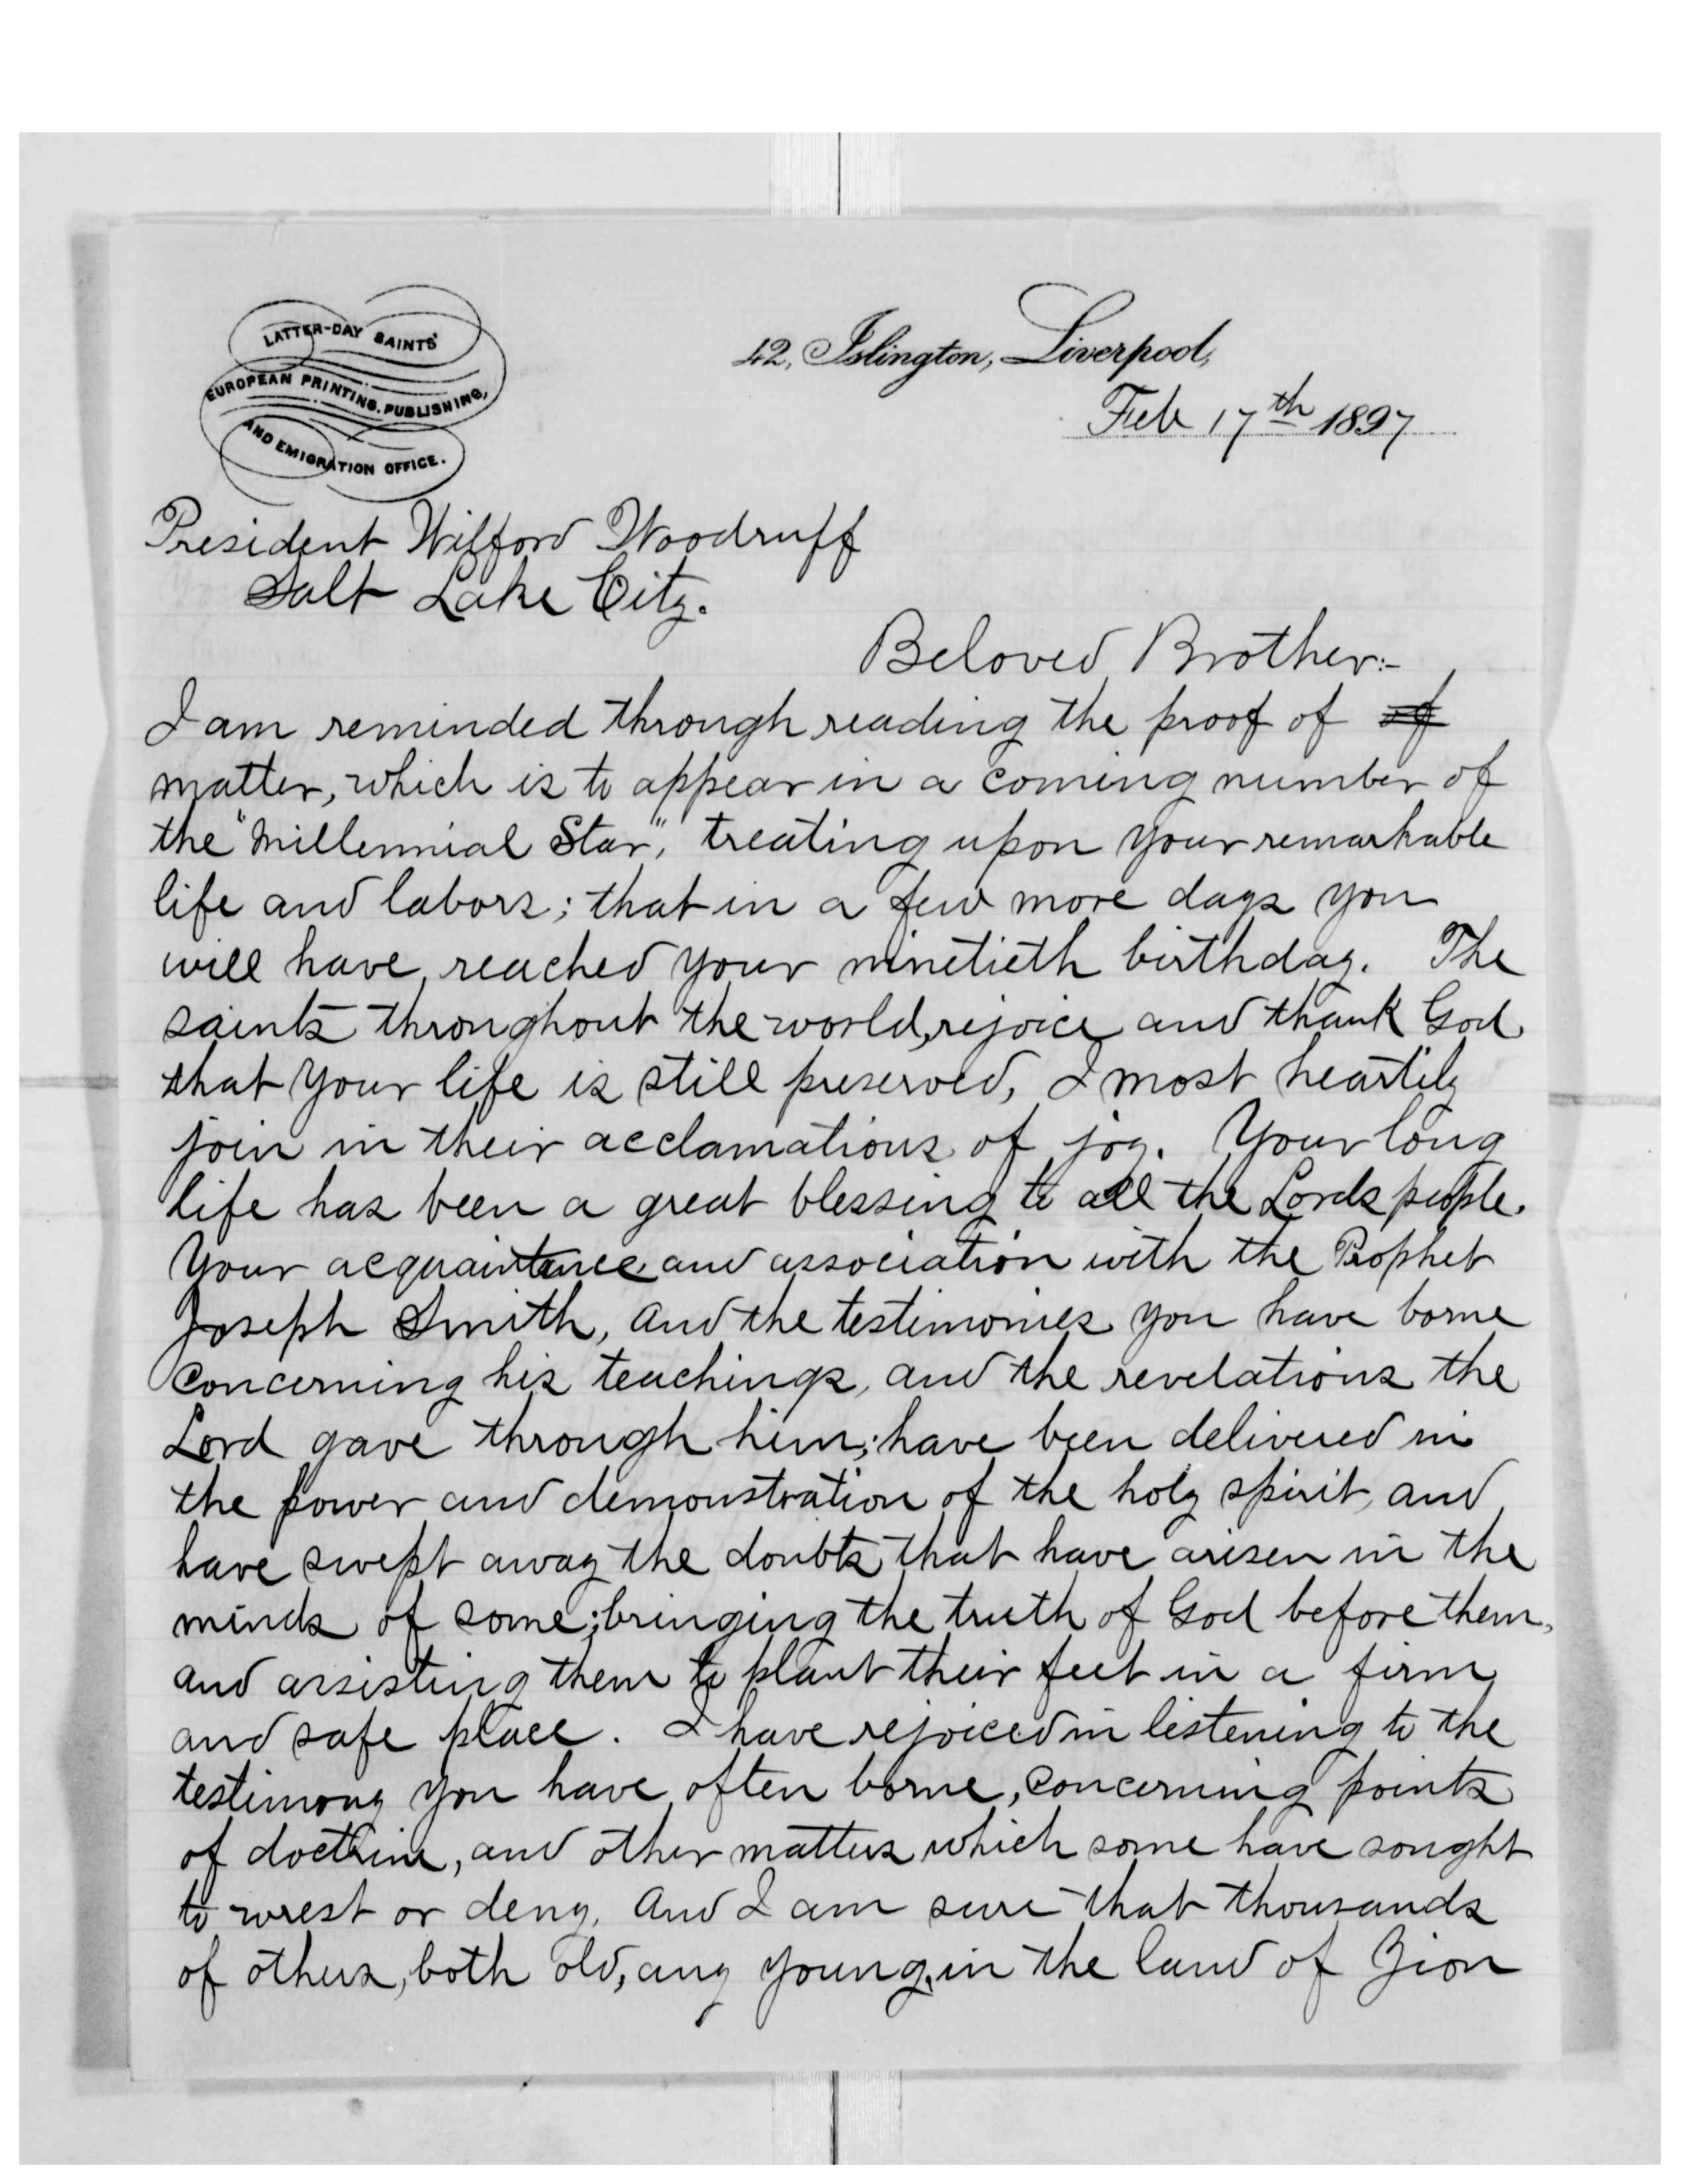 LATTER-DAY SAINTS'
EUROPEAN PRINTING, PUBLISHING,
AND EMIGRATION OFFICE.
42, Islington, Liverpool,
Feb 17th 1897
President Wilford Woodruff
Salt Lake City.
Beloved Brother:-
I am reminded through reading the proof of of
matter, which is to appear in a coming number of
the "Millennial Star," treating upon your remarkable
life and labors; that in a few more days you
will have reached your ninetieth birthday. The
saints throughout the world, rejoice and thank God
that your life is still preserved, I most heartily
join in their acclamations of joy. Your long
life has been a great blessing to all the Lords people.
Your acquaintance and association with the Prophet
Joseph Smith, and the testimonies you have borne
concerning his teachings, and the revelations the
Lord gave through him; have been delivered in
the power and demonstration of the holy spirit, and
have swept away the doubts that have arisen in the
minds of some; bringing the truth of God before them,
and assisting them to plant their feet in a firm
and safe place. I have rejoiced in listening to the
testimony you have often borne, concerning points
of doctrine, and other matters which some have sought
to wrest or deny. And I am sure that thousands
of others, both old, any young, in the land of Zion